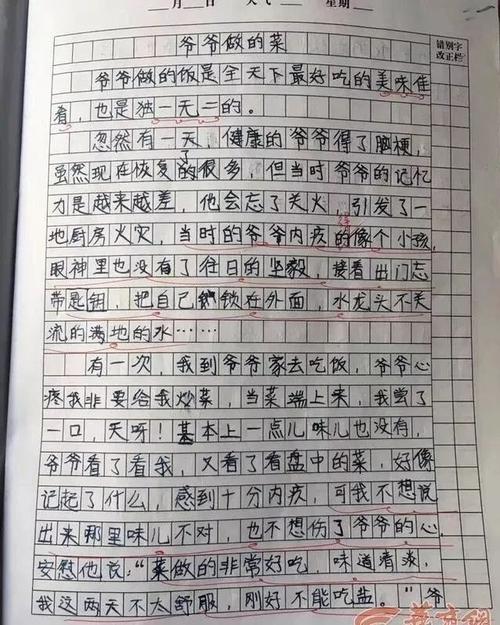 月 日 天气 星期
错别字
改正栏
爷爷做的菜
爷爷做的饭是全天下最好吃的美味佳
肴，也是独一无二的。
忽然有一天，健康的爷爷得了脑梗，
虽然现在恢复了的很多，但当时爷爷的记忆
力是越来越差，他会忘了关火，引发了一
地厨房火灾，当时的爷爷内疚的像个小孩，
眼神里也没有了往日的坚毅，接着出门忘
带是钥，把自己锁在外面，水龙头不关
流的满地的水……
有一次，我到爷爷家去吃饭，爷爷心
疼我非要给我炒菜，当菜端上来，我尝了
一口，天呀！基本上一点儿味儿也没有，
爷爷看了看我，又看了看盘中的菜，好像
记起了什么，感到十分内疚，可我不想说
出来那里味儿不对，也不想伤了爷爷的心，
安慰他说：“菜做的非常好吃，味道清淡，
我这两天不太舒服，刚好不能吃盐。”爷